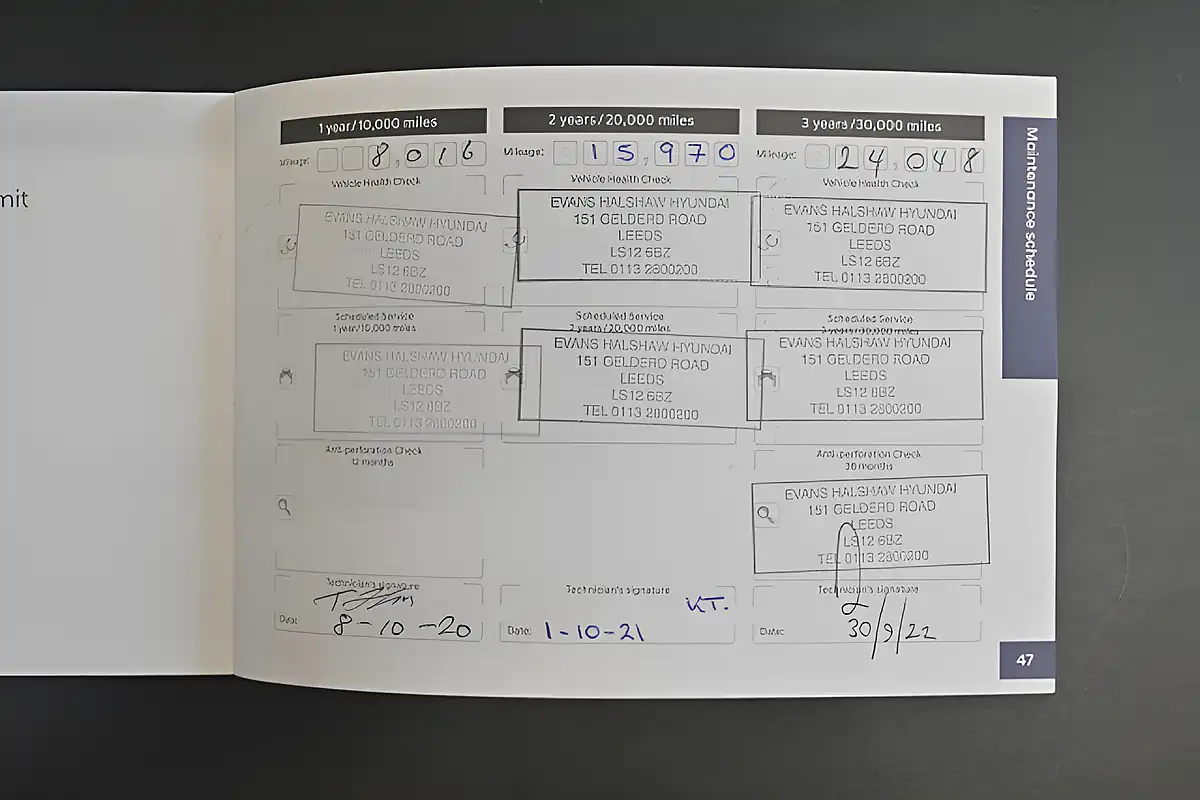 mit
1 year/10,000 miles
Mileage: 8,016
Vehicle Health Check
EVANS HALSHAW HYUNDAI
151 GELDERD ROAD
LEEDS
LS12 6BZ
TEL 0113 2800200
Scheduled Service
1 year/10,000 miles
EVANS HALSHAW HYUNDAI
151 GELDERD ROAD
LEEDS
LS12 6BZ
TEL 0113 2800200
Anti-perforation Check
12 months
Technician's signature
Date: 8-10-20
2 years/20,000 miles
Mileage: 15,970
Vehicle Health Check
EVANS HALSHAW HYUNDAI
151 GELDERD ROAD
LEEDS
LS12 6BZ
TEL 0113 2800200
Scheduled Service
2 years/20,000 miles
EVANS HALSHAW HYUNDAI
151 GELDERD ROAD
LEEDS
LS12 6BZ
TEL 0113 2800200
Technician's signature
KT.
Date: 1-10-21
3 years/30,000 miles
Mileage: 24,048
Vehicle Health Check
EVANS HALSHAW HYUNDAI
151 GELDERD ROAD
LEEDS
LS12 6BZ
TEL 0113 2800200
Scheduled Service
3 years/30,000 miles
EVANS HALSHAW HYUNDAI
151 GELDERD ROAD
LEEDS
LS12 6BZ
TEL 0113 2800200
Anti-perforation Check
30 months
EVANS HALSHAW HYUNDAI
151 GELDERD ROAD
LEEDS
LS12 6BZ
TEL 0113 2800200
Technician's signature
Date: 30/9/22
Maintenance schedule
47